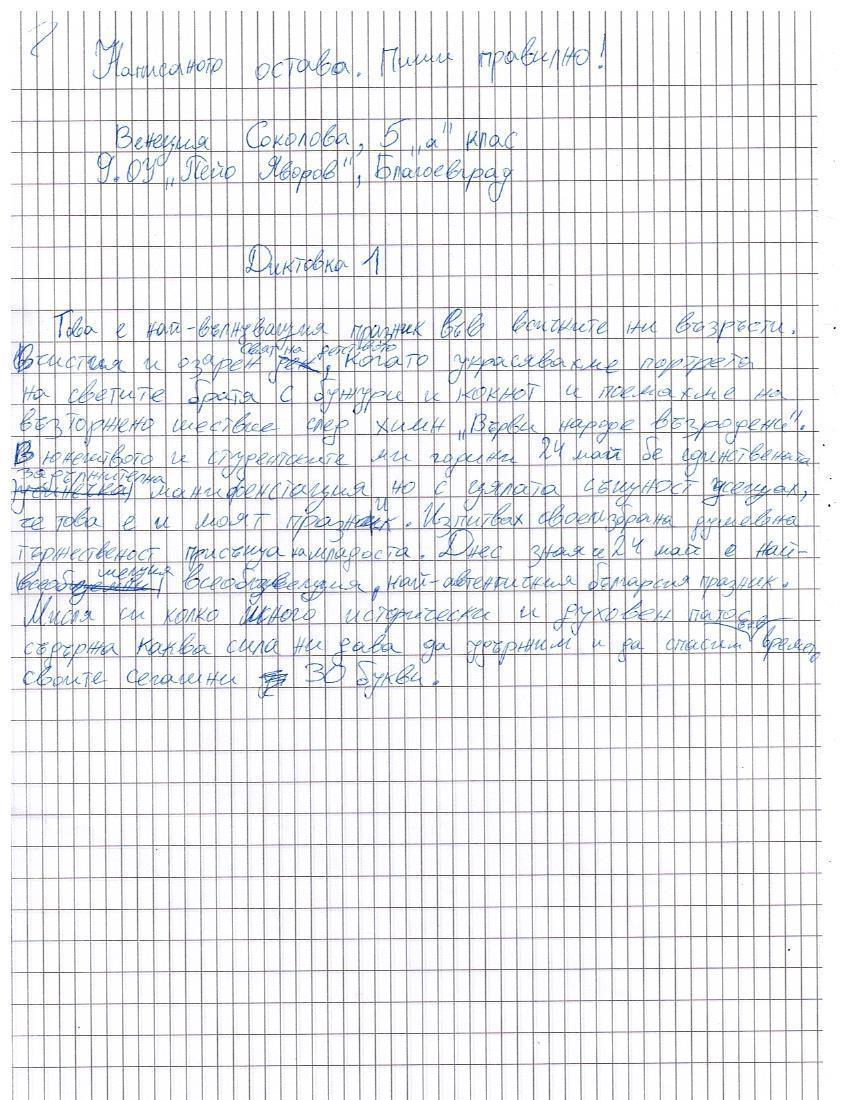 Написаното остава. Пиши правилно!
Венеция Соколова, 5 „а" клас
9. ОУ „Пейо Яворов", Благоевград
Диктовка 1
Това е най-вълнуващия празник във всичките ни възръсти.
В чистия и озарен свят на детството, когато украсявахме портрета
на светите братя с бужури и кокнот и поемахме на
възторжено шествие след химн „Върви народе възродени".
В юнежтвото и студентските ми години 24 май бе единствената
задължителна манифенстация но с цялата същност усещах,
че това е и моят празник. Изпитвах своеиздрана душевна
тържественост присъща на младоста. Днес зная е 24 май е най-
всеобщия, най-автентичния българсия празник.
Мисля си колко много исторически и духовен патос
съдържа каква сила ни дава да удържим и да спасим във времето
своите сегашни 30 букви.